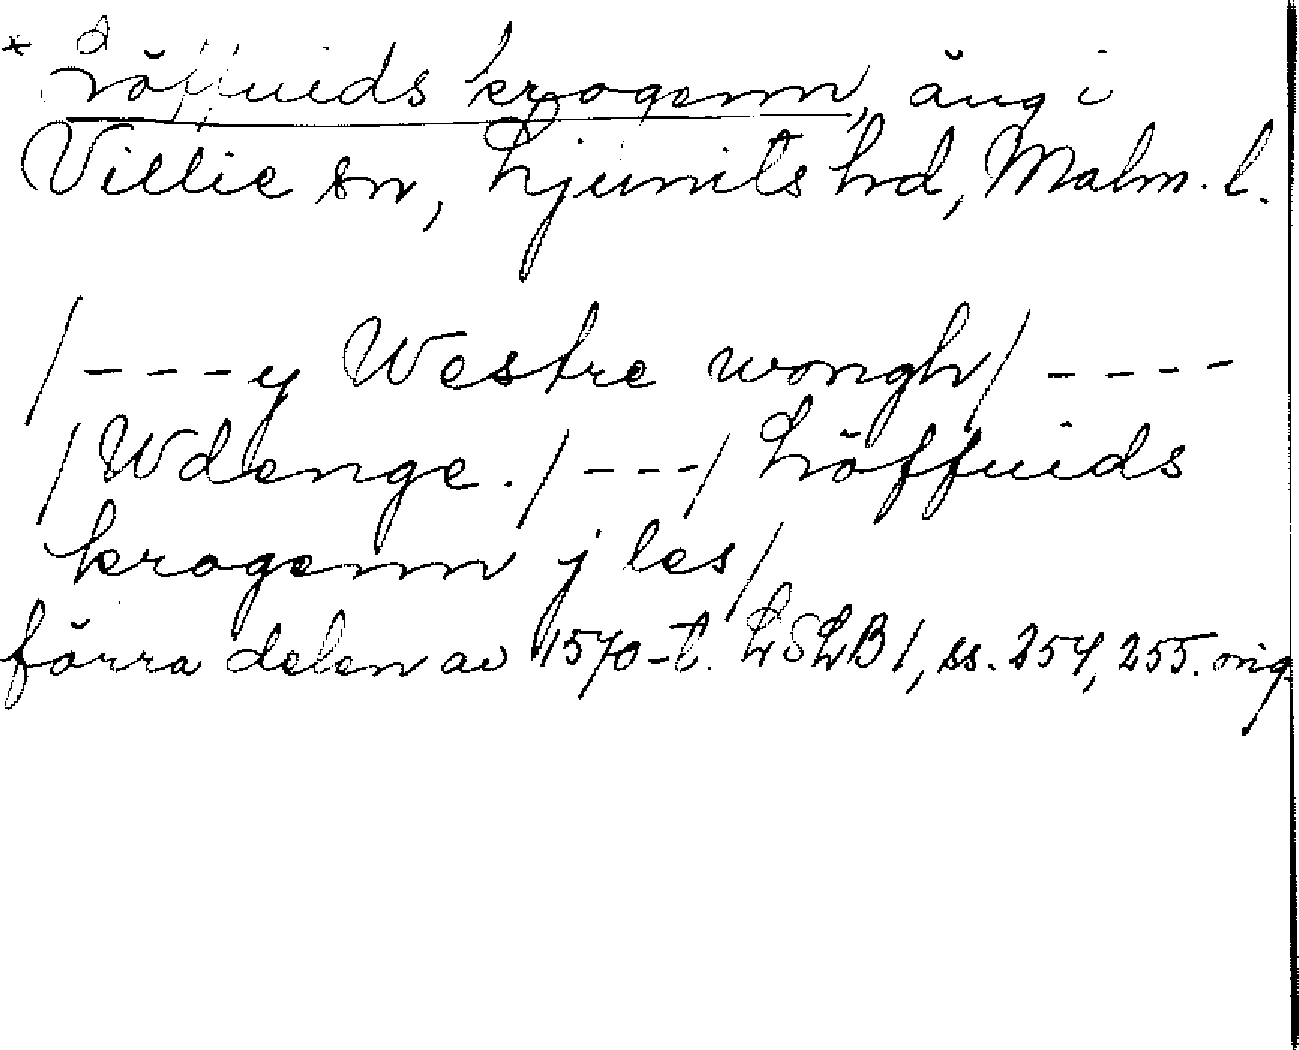 * Löffuids krogenn, äng i
Villie sn, Ljunits hd, Malm. l.
/ - - - y Westre wongh / - - - -
/ Wdenge. / - - - / Löffuids
krogenn j les /
förra delen av 1570-t. LSLB 1, ss. 254, 255. orig.